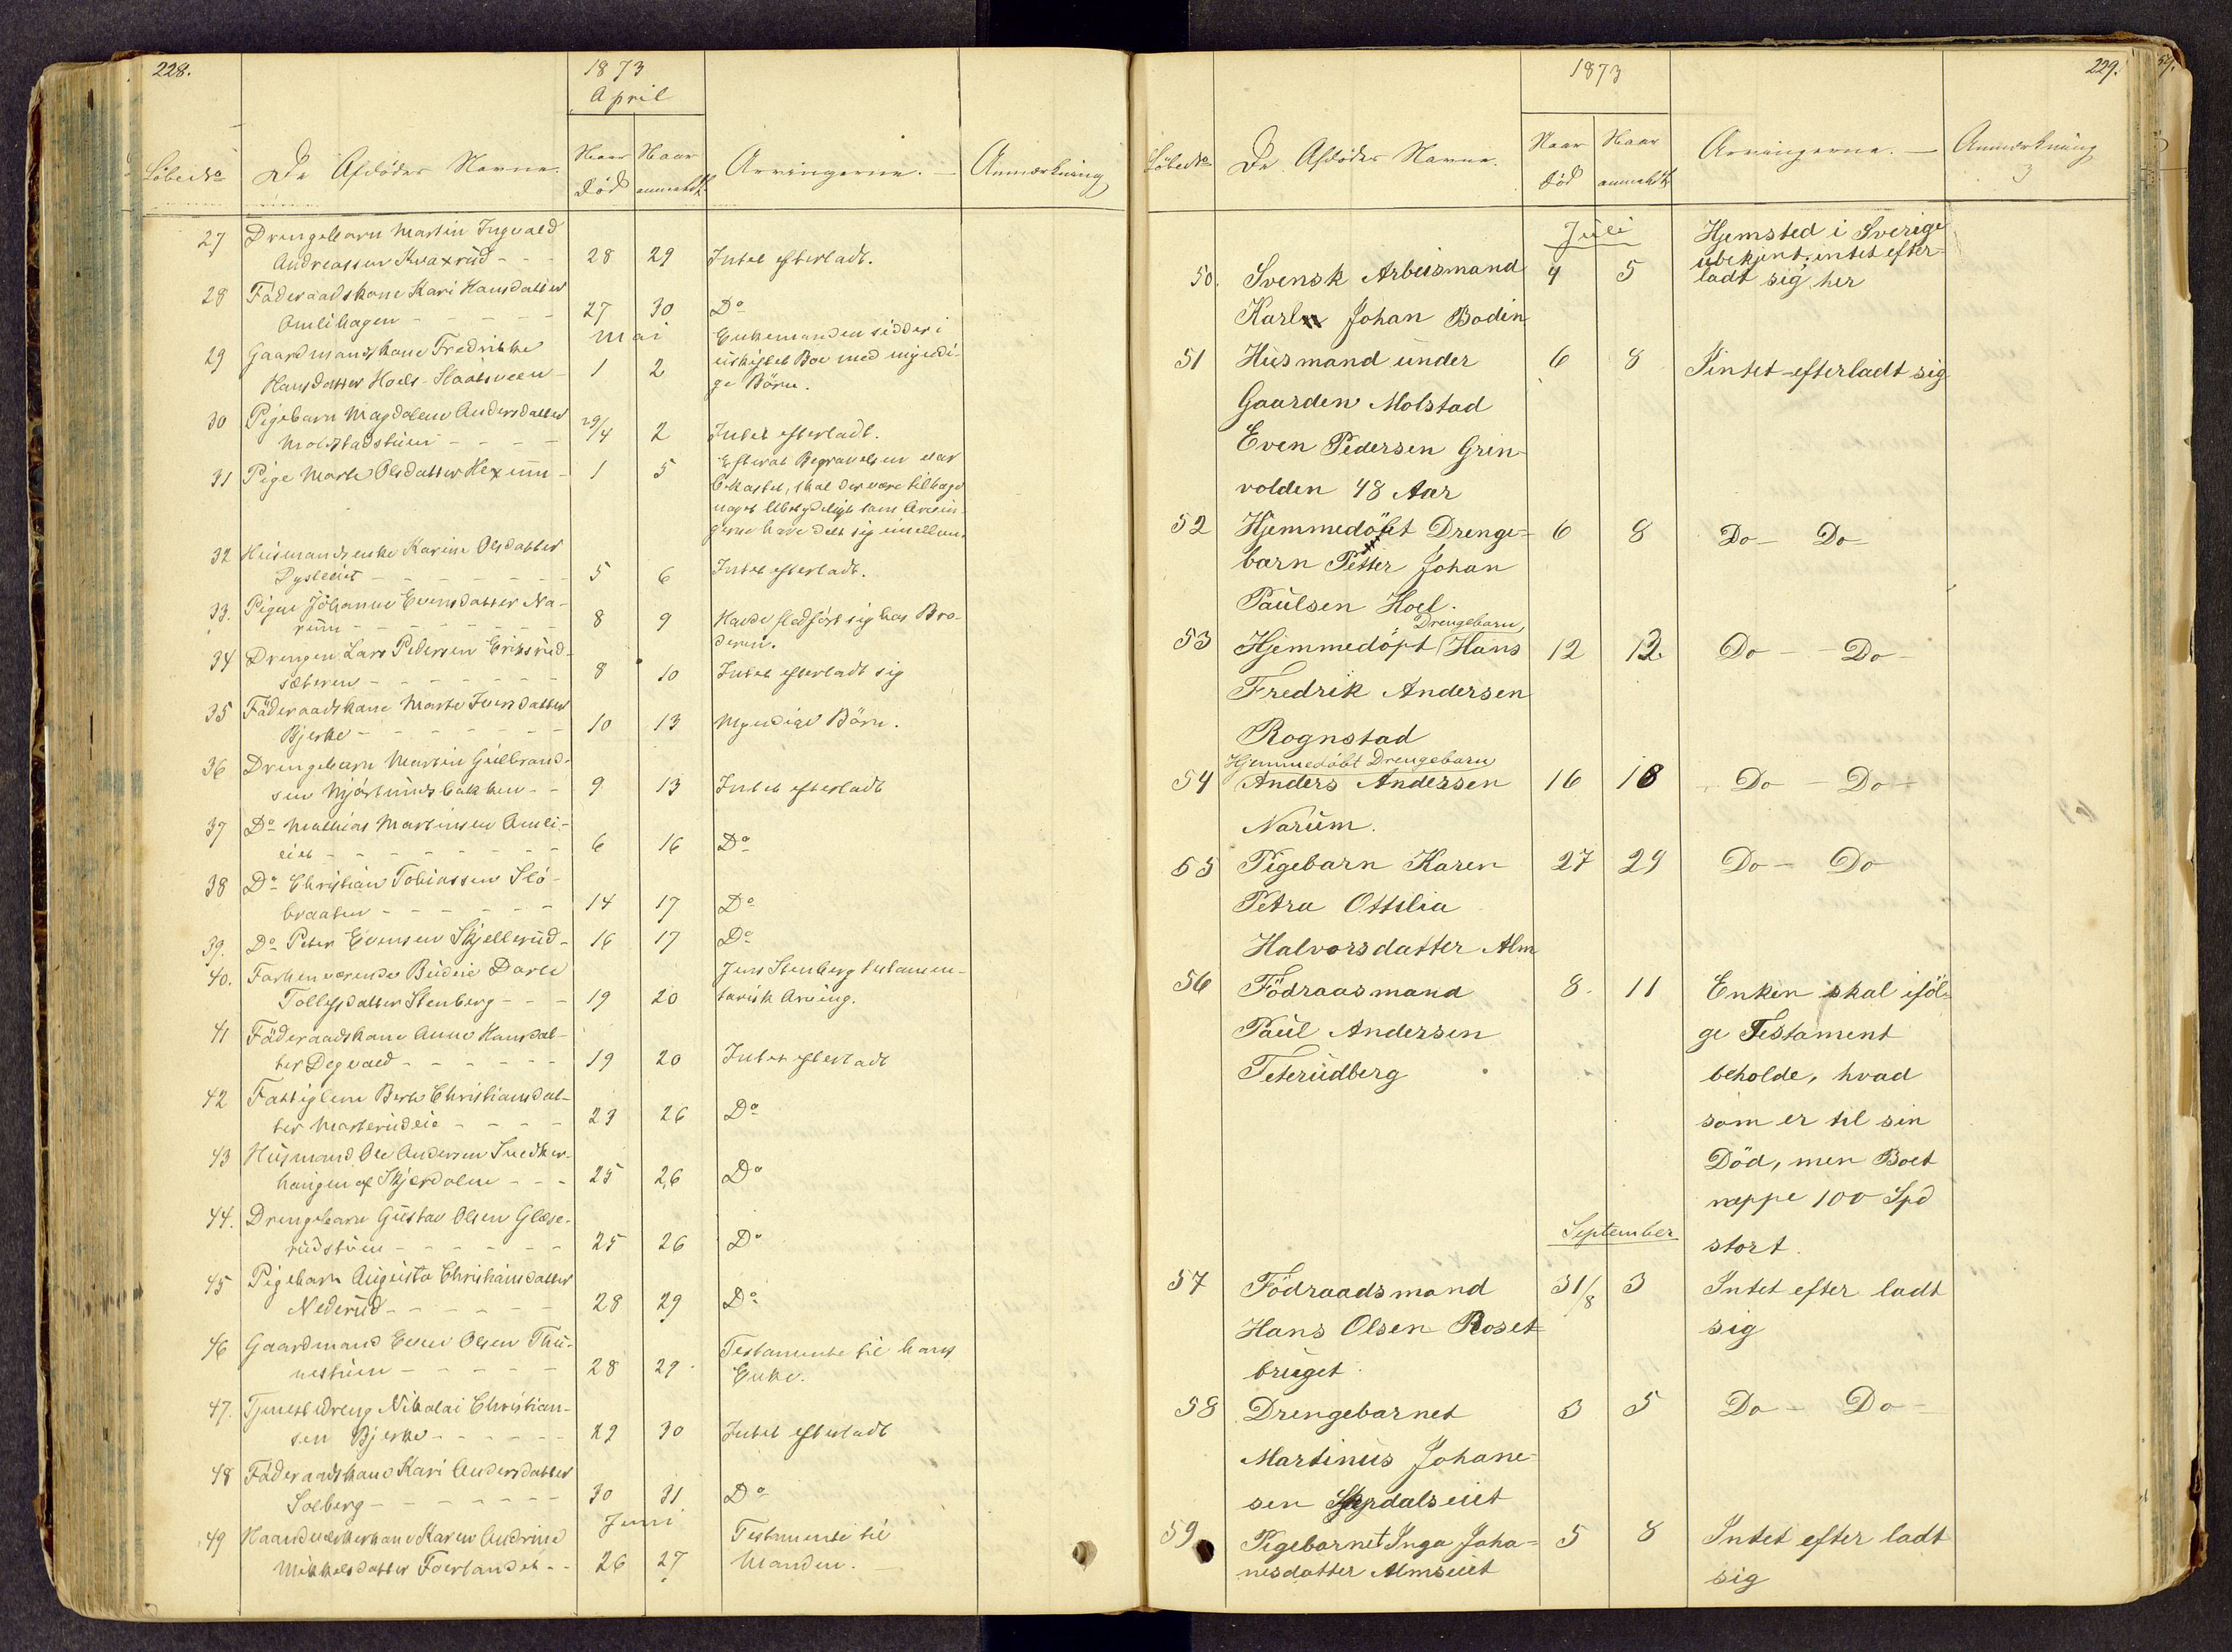 228.
1873
April
LöbeNo De Afdödes Navne. Naar Död Naar anmeldt Arvingerne. — Anmærkning
27 Drengebarn Martin Ingvald
Andreassen Kvaxrud - - - 28 29 Intet efterladt.
28 Föderaadskone Kari Hansdatter
Amlihagen - - - - - 27 30 Do
Mai
29 Gaardmandskone Fredrikke
Hansdatter Hoels-Slaatsveen - 1 2 Enkemanden sidder i
uskiftet Boe med myndi-
ge Börn.
30 Pigebarn Magdalene Andersdatter
Molstadstuen - - - - 29/4 2 Intet efterladt.
31 Pige Marte Olsdatter Hexum - 1 5 Efterat Begravelsen var
bekostet, skal der være tilbage
noget Ubetydeligt som Arvin-
gerne have delt sig imellem.
32 Husmandsenke Karine Olsdatter
Lysleiet - - - - - - - 5 6 Intet efterladt.
33. Pigen Johanne Evensdatter Na-
rum - - - - - - - 8 9 Havde fledfört sig hos Bro-
deren.
34 Drengen Lars Pedersen Eriksrud-
sæteren - - - - - - 8 10 Intet efterladt sig
35 Föderaadskone Marte Iversdatter
Bjerke - - - - - - - 10 13 Myndige Börn.
36 Drengebarn Martin Gulbrand-
sen Mjörlundsbakken - - 9 13 Intet efterladt
37 Do Mathias Martinsen Amli-
eiet - - - - - - - - 6 16 Do
38 Do Christian Tobiassen Slö-
braaten - - - - - - 14 17 Do
39. Do Peter Evensen Skjellerud - 16 17 Do
40. Forhenværende Budeie Dorte
Tollefsdatter Stenberg - - - 19 20 Jens Stenberg testamen-
tarisk Arving.
41 Föderaadskone Anne Hansdat-
ter Degvold - - - - - - 19 20 Intet efterladt
42 Fattiglem Berte Christiansdat-
ter Marterudeie - - - - 23 26 Do
43 Husmand Ole Andersen Snedker-
haugen af Skjerdalen - - - 25 26 Do
44. Drengebarn Gustav Olsen Glæse-
rudstuen - - - - - - 25 26 Do
45 Pigebarn Augusta Christiansdatter
Nederud - - - - - - 28 29 Do
46 Gaardmand Even Olsen Thu-
nestuen - - - - - - 28 29 Testamente til hans
Enke.
47. Tjenestedreng Nikolai Christian-
sen Bjerke - - - - - - 29 30 Intet efterladt
48 Föderaadskone Kari Andersdatter
Solberg - - - - - - - 30 31 Do
Juni
49 Haandverkerkone Karen Andrine
Mikkelsdatter Foerlandet - - 26 27 Testamente til
Manden. —
229.
1873
LöbeNo De Afdödes Navne. Naar död Naar anmeldt Arvingerne. — Anmærkning
Juli
50. Svensk Arbeismand 4 5 Hjemsted i Sverige
ubekjent, intet efter-
ladt sig her
Karl Johan Bodin
51 Husmand under 6 8 Iintet efterladt sig
Gaarden Molstad
Even Pedersen Grin-
volden 48 Aar
52 Hjemmedöbt Drenge= 6 8 Do — Do —
barn Petter Johan
Paulsen Hoel.
Drengebarn,
53 Hjemmedöpt Hans 12 12. Do — Do —
Fredrik Andersen
Rognstad
Hjemmedöbt Drengebarn
54 Anders Andersen 16 18 Do — Do —
Narum.
55 Pigebarn Karen 27 29 Do — Do
Petra Ottilia
Halvorsdatter Alm
56 Födraasmand 8. 11 Enken skal iföl-
Paul Andersen ge Testament
Teterudberg beholde, hvad
som er til sin
Död, men Boet
neppe 100 Spd
stort.
September
57 Födraadsmand 31/8 3 Intet efter ladt
Hans Olsen Roset= sig
bruget.
58 Drengebarnet 3 5 Do — Do —
Martinus Johane-
sen Skjrdalseiet
59 Pigebarnet Inga Joha= 5 8 Intet efter ladt
nesdatter Almseiet sig